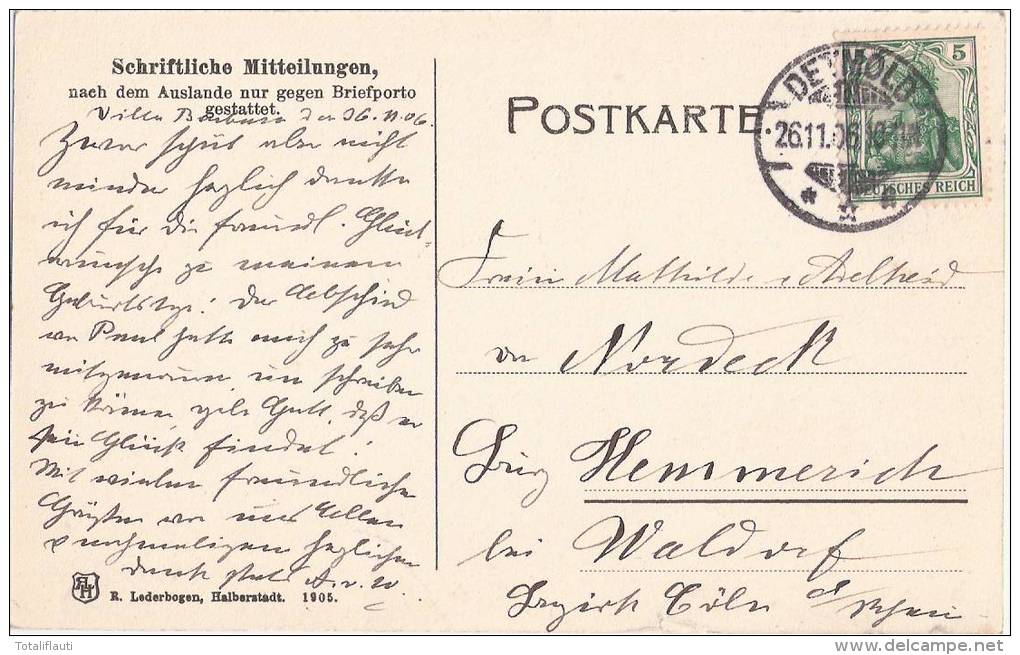 Schriftliche Mitteilungen,
nach dem Auslande nur gegen Briefporto
gestattet.
Villa 26.11.06.
Zwar spät aber nicht
minder herzlich danke
ich für die freundl. Glück-
wünsche zu meinem
Geburtstage! Der Abschied
von Paul hatte mich zu sehr
mitgenommen um schreiben
zu können, gebe Gott, daß er
sein Glück findet!
Mit vielen freundlichen
Grüßen von uns Allen
u nochmaligen herzlichen
Dank A. v.
R. Lederbogen, Halberstadt. 1905.
POSTKARTE
DETMOLD
26.11.06
5
DEUTSCHES REICH
Mathilde u Adelheid
von Nordeck
Burg Hemmerich
bei Waldorf
Bezirk Cöln a/Rhein
Totaliflauti
www.delcampe.net